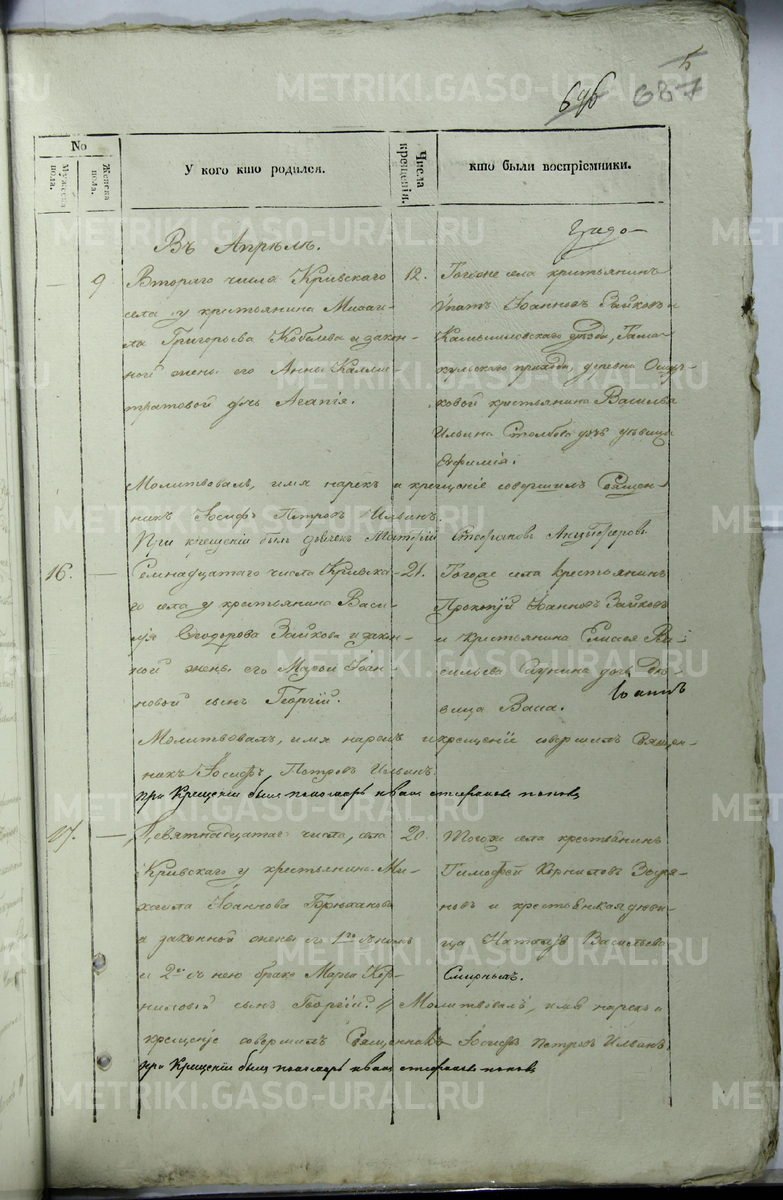 5
696 687
No
Мужеска пола.
Женска пола.
У кого кто родился.
Числа крещенія.
кто были воспріемники.
Въ Апрѣлѣ.
— 9. Втораго числа Кривскаго
села у крестьянина Михаи-
ла Григорьева Кобелева и закон-
ной жены его Анны Калли-
тратовой дочь Агапія.
12. Тогоже села крестьянинъ
Ипатъ Іоанновъ Зайковъ и
Камышловскаго уѣзда,
прихода, деревни
ковой крестьянина Василья
Ильина Столбова дочь дѣвица
Евфимія.
Молитвовалъ, имя нарекъ и крещеніе совершилъ Священ-
никъ Іосифъ Петровъ Ильинъ.
При крещеніи былъ дьячекъ Стефановъ Анцыферовъ
16. — Семнадцатаго числа Кривска-
го села у крестьянина Васи-
лья Ѳеодорова Зайкова и закон-
ной жены его Іоан-
новой сынъ Георгій.
21. Тогоже села крестьянинъ
Прокопій Іоанновъ Зайковъ
и крестьянина Елисея Ва-
сильева дочь дѣ-
вица Васа.
Молитвовалъ, имя нарекъ и крещеніе совершилъ Священ-
никъ Іосифъ Петровъ Ильинъ
при Крещеніи былъ пономарь Иванъ Стефановъ Поповъ
17. — Девятнадцатаго числа, села
Кривскаго у крестьянина Ми-
хаила Іоаннова
и законной жены его 1го
и 2го съ нею брака Марьи Кор-
ниловой сынъ Георгій.
20. Тогоже села крестьянинъ
Тимофей Корниловъ
новъ и крестьянская дѣви-
ца Наталія Васильева
Смирныхъ.
Молитвовалъ, имя нарекъ и
крещеніе совершилъ Священникъ Іосифъ Петровъ Ильинъ
при Крещеніи былъ пономарь Иванъ Стефановъ Поповъ
METRIKI.GASO-URAL.RU